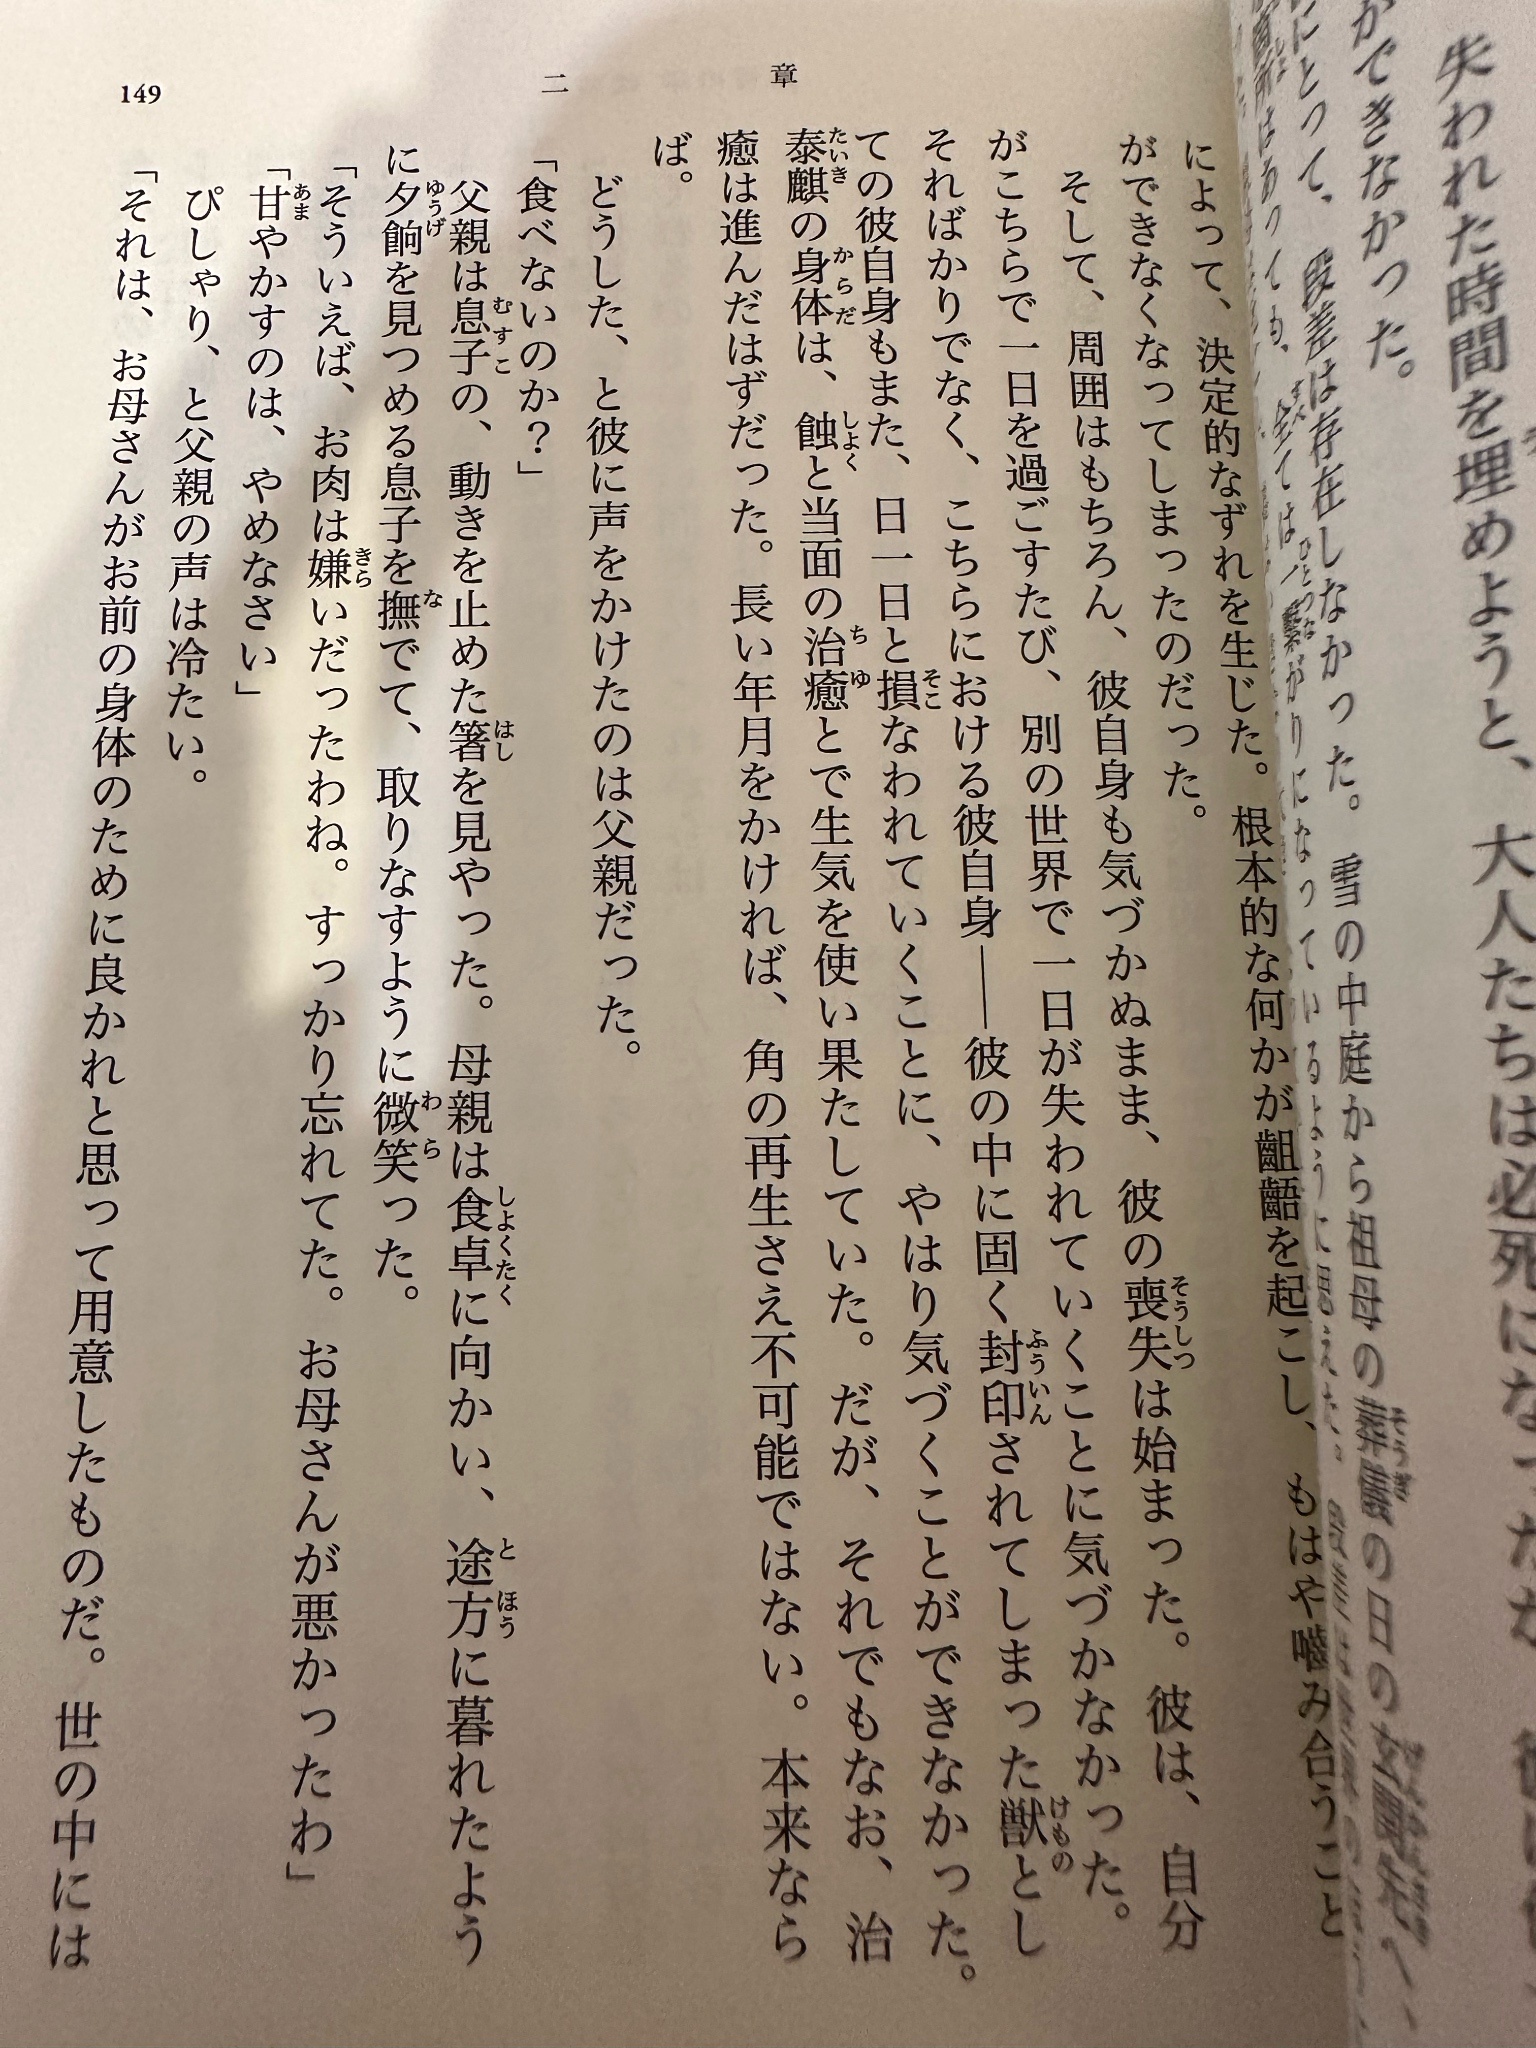 失われた時間を埋めようと、大人たちは必死になった
ができなかった。
段差は存在しなかった。雪の中庭から祖母の葬儀の日の
にとって、全ては一繋がりになっているように思えた。
二章
によって、決定的なずれを生じた。根本的な何かが齟齬を起こし、もはや嚙み合うこと
ができなくなってしまったのだった。
そして、周囲はもちろん、彼自身も気づかぬまま、彼の喪失は始まった。彼は、自分
がこちらで一日を過ごすたび、別の世界で一日が失われていくことに気づかなかった。
そればかりでなく、こちらにおける彼自身――彼の中に固く封印されてしまった獣とし
ての彼自身もまた、日一日と損なわれていくことに、やはり気づくことができなかった。
泰麒の身体は、蝕と当面の治癒とで生気を使い果たしていた。だが、それでもなお、治
癒は進んだはずだった。長い年月をかければ、角の再生さえ不可能ではない。本来なら
ば。
どうした、と彼に声をかけたのは父親だった。
「食べないのか？」
父親は息子の、動きを止めた箸を見やった。母親は食卓に向かい、途方に暮れたよう
に夕餉を見つめる息子を撫でて、取りなすように微笑った。
「そういえば、お肉は嫌いだったわね。すっかり忘れてた。お母さんが悪かったわ」
「甘やかすのは、やめなさい」
ぴしゃり、と父親の声は冷たい。
「それは、お母さんがお前の身体のために良かれと思って用意したものだ。世の中には
149